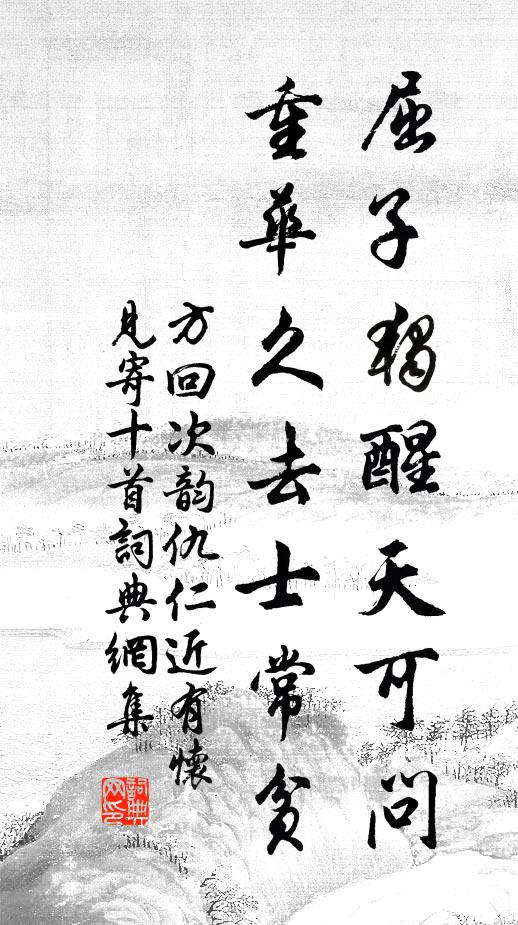 屈子獨醒天可問
重華久去士常貧
方回次韵仇仁近有懷
見寄十首詞典網集
詞典
网印